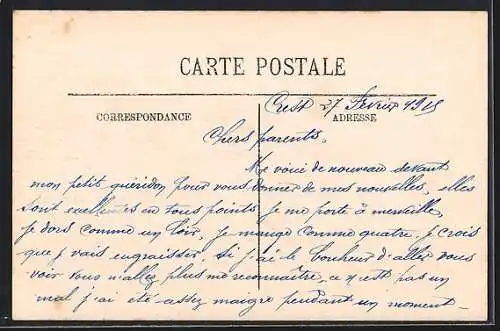 CARTE POSTALE
CORRESPONDANCE
ADRESSE
Crest 27 Février 1915
Chers parents,
Me voici de nouveau devant
mon petit guéridon pour vous donner de mes nouvelles, elles
sont exellentes en tous points je me porte à merveille,
je dors comme un loir, je mange comme quatre, je crois
que j vais engraisser, si j'ai le bonheur d'aller vous
voir vous n'allez plus me reconnaître, ce n'est pas un
mal j'ai été assez maigre pendant un moment -